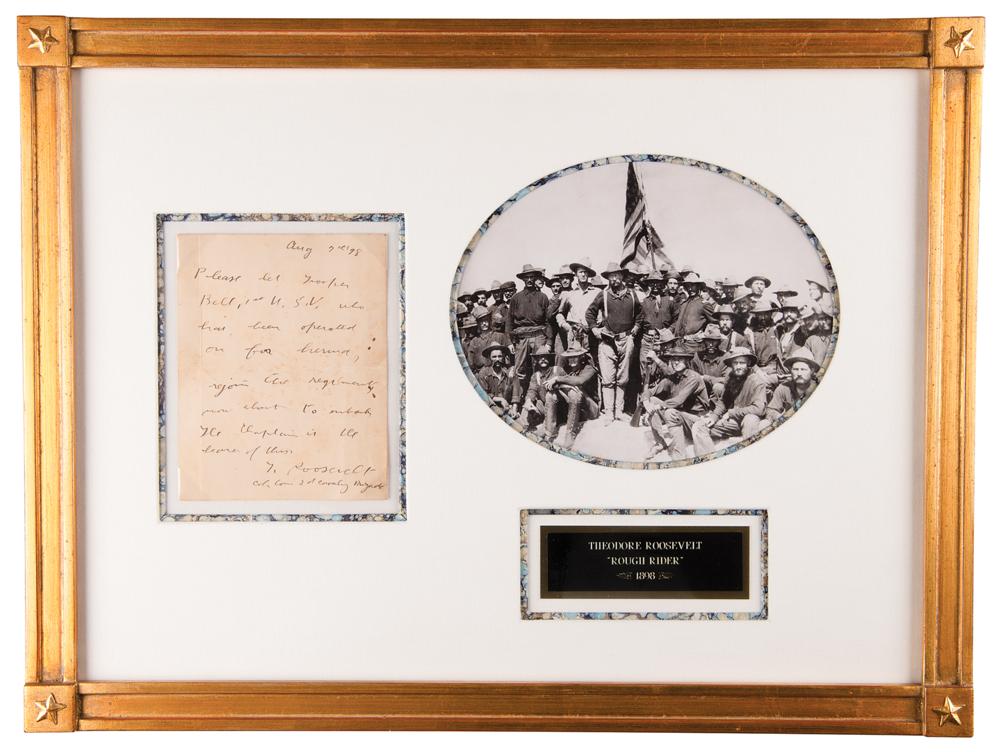 Aug 7th 98
Please let Trooper
Bell, 1st U.S.V, who
has been operated
on for hernia,
rejoin the regiment
now about to embark
The Chaplain is the
bearer of this.
T. Roosevelt
Col. Com 2d Cavalry Brigade
THEODORE ROOSEVELT
"ROUGH RIDER"
1898